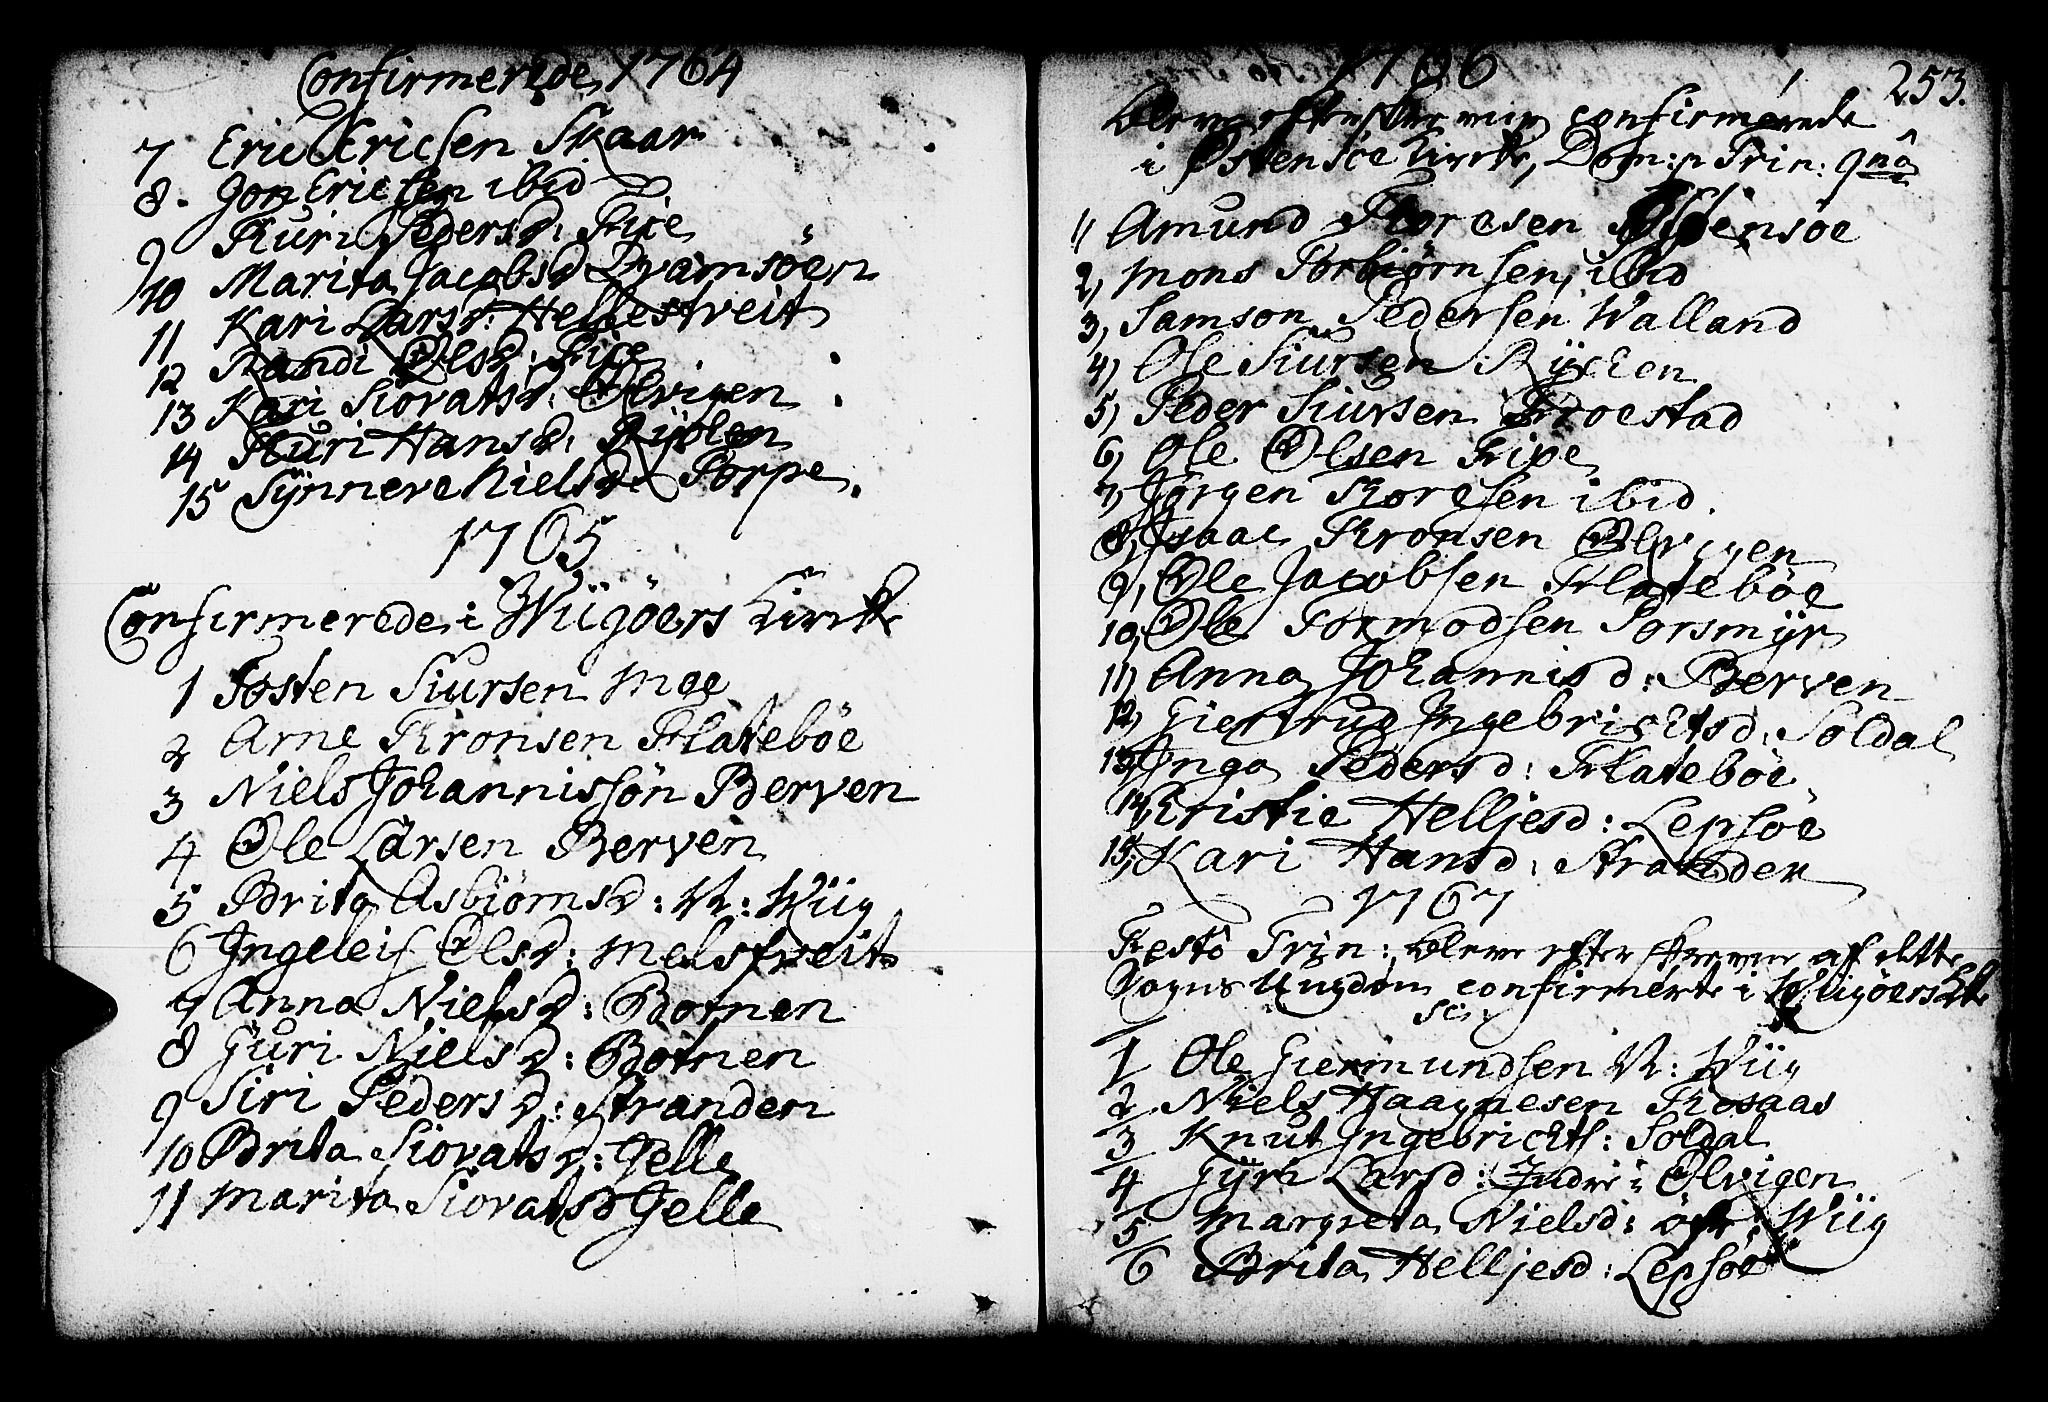 Confirmerede 1764
7 Eric Ericsen Skaar
8. Jon Ericsen ibid
9 Guri Pedersd: Fixe
10 Marita Jacobsd Qvamsöen
11 Kari Larsd: Hellestveit
12 Randi Olsd: Fixe
13 Kari Siovatsd: Ølvigen
14 Guri Hansd: Rÿken
15 Sÿnneve Nielsd: Torpe.
1765
Confirmerede i Wiigöers Kirke
1 Tosten Siursen Moe
2 Arne Thronsen Flateböe
3 Niels Johannissön Berven
4 Ole Larsen Berven
5 Brita Asbiörnsd: N: Wiig
6 Ingeleif Olsd: Melstveit
7 Anna Nielsd: Botnen
8 Guri Nielsd: Botnen
9 Siri Pedersd: Stranden
10 Brita Siovatsd: Jelle
11 Marita Siovatsd Jelle
1766
253.
bleve efterskrevne confirmerede
i Østensöe Kirke, Dom: p Trin: 9nâ
1, Amund Toresen Østensöe
2, Mons Torbiörnsen, ibid
3, Samson Pedersen Walland
4, Ole Siursen Rÿcken
5, Peder Siursen Froestad
6, Ole Olsen Fixe
7, Jörgen Toresen ibid.
8, Isaac Thronsen Ølvigen
9, Ole Jacobsen Flateböe
10, Ole Tormodsen Porsmÿr
11, Anna Johannisd: Berven
12, Giertrud Ingebrichtsd: Soldal
13, Inga Pedersd: Flateböe
14, Christie Helljesd: Lepsöe
15, Kari Hansd: Stranden
1767
Festô Trin: bleve efterskrevne af dette
Sogns Ungdom confirmerte i Wiigöers Kke
sc.
1 Ole Giermundsen N: Wiig
2 Niels Haagnesen Rosaas
3 Knut Ingebrichts: Soldal
4 Gÿri Larsd: Indre i Ølvigen
5 Margreta Nielsd: öfr: Wiig
6 Brita Helljesd: Lepsöe